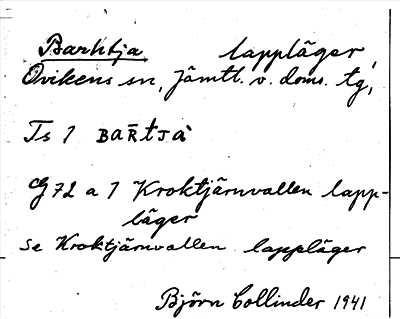 Barhtja lappläger,
Ovikens sn, Jämtl. v. doms. tg,
Ts 1 BAR̄tJA
G 72 a 1 Kroktjärnvallen lapp-
läger
se Kroktjärnvallen lappläger
Björn Collinder 1941